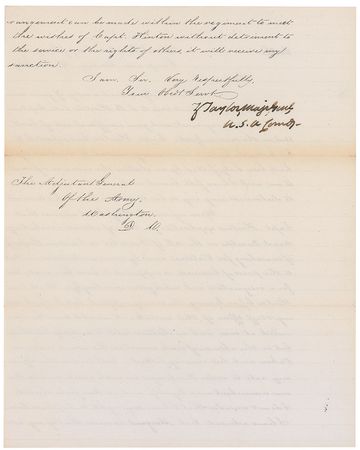 rangement can be made within the regiment to meet
the wishes of Capt. Hunton without detriment to
the service or the rights of others it will receive my
sanction.
I am, Sir, Very Respectfully,
Your Obdt Servt
Z Taylor Maj Genl
U. S. A Comdg
The Adjutant General
Of the Army,
Washington
D. C.